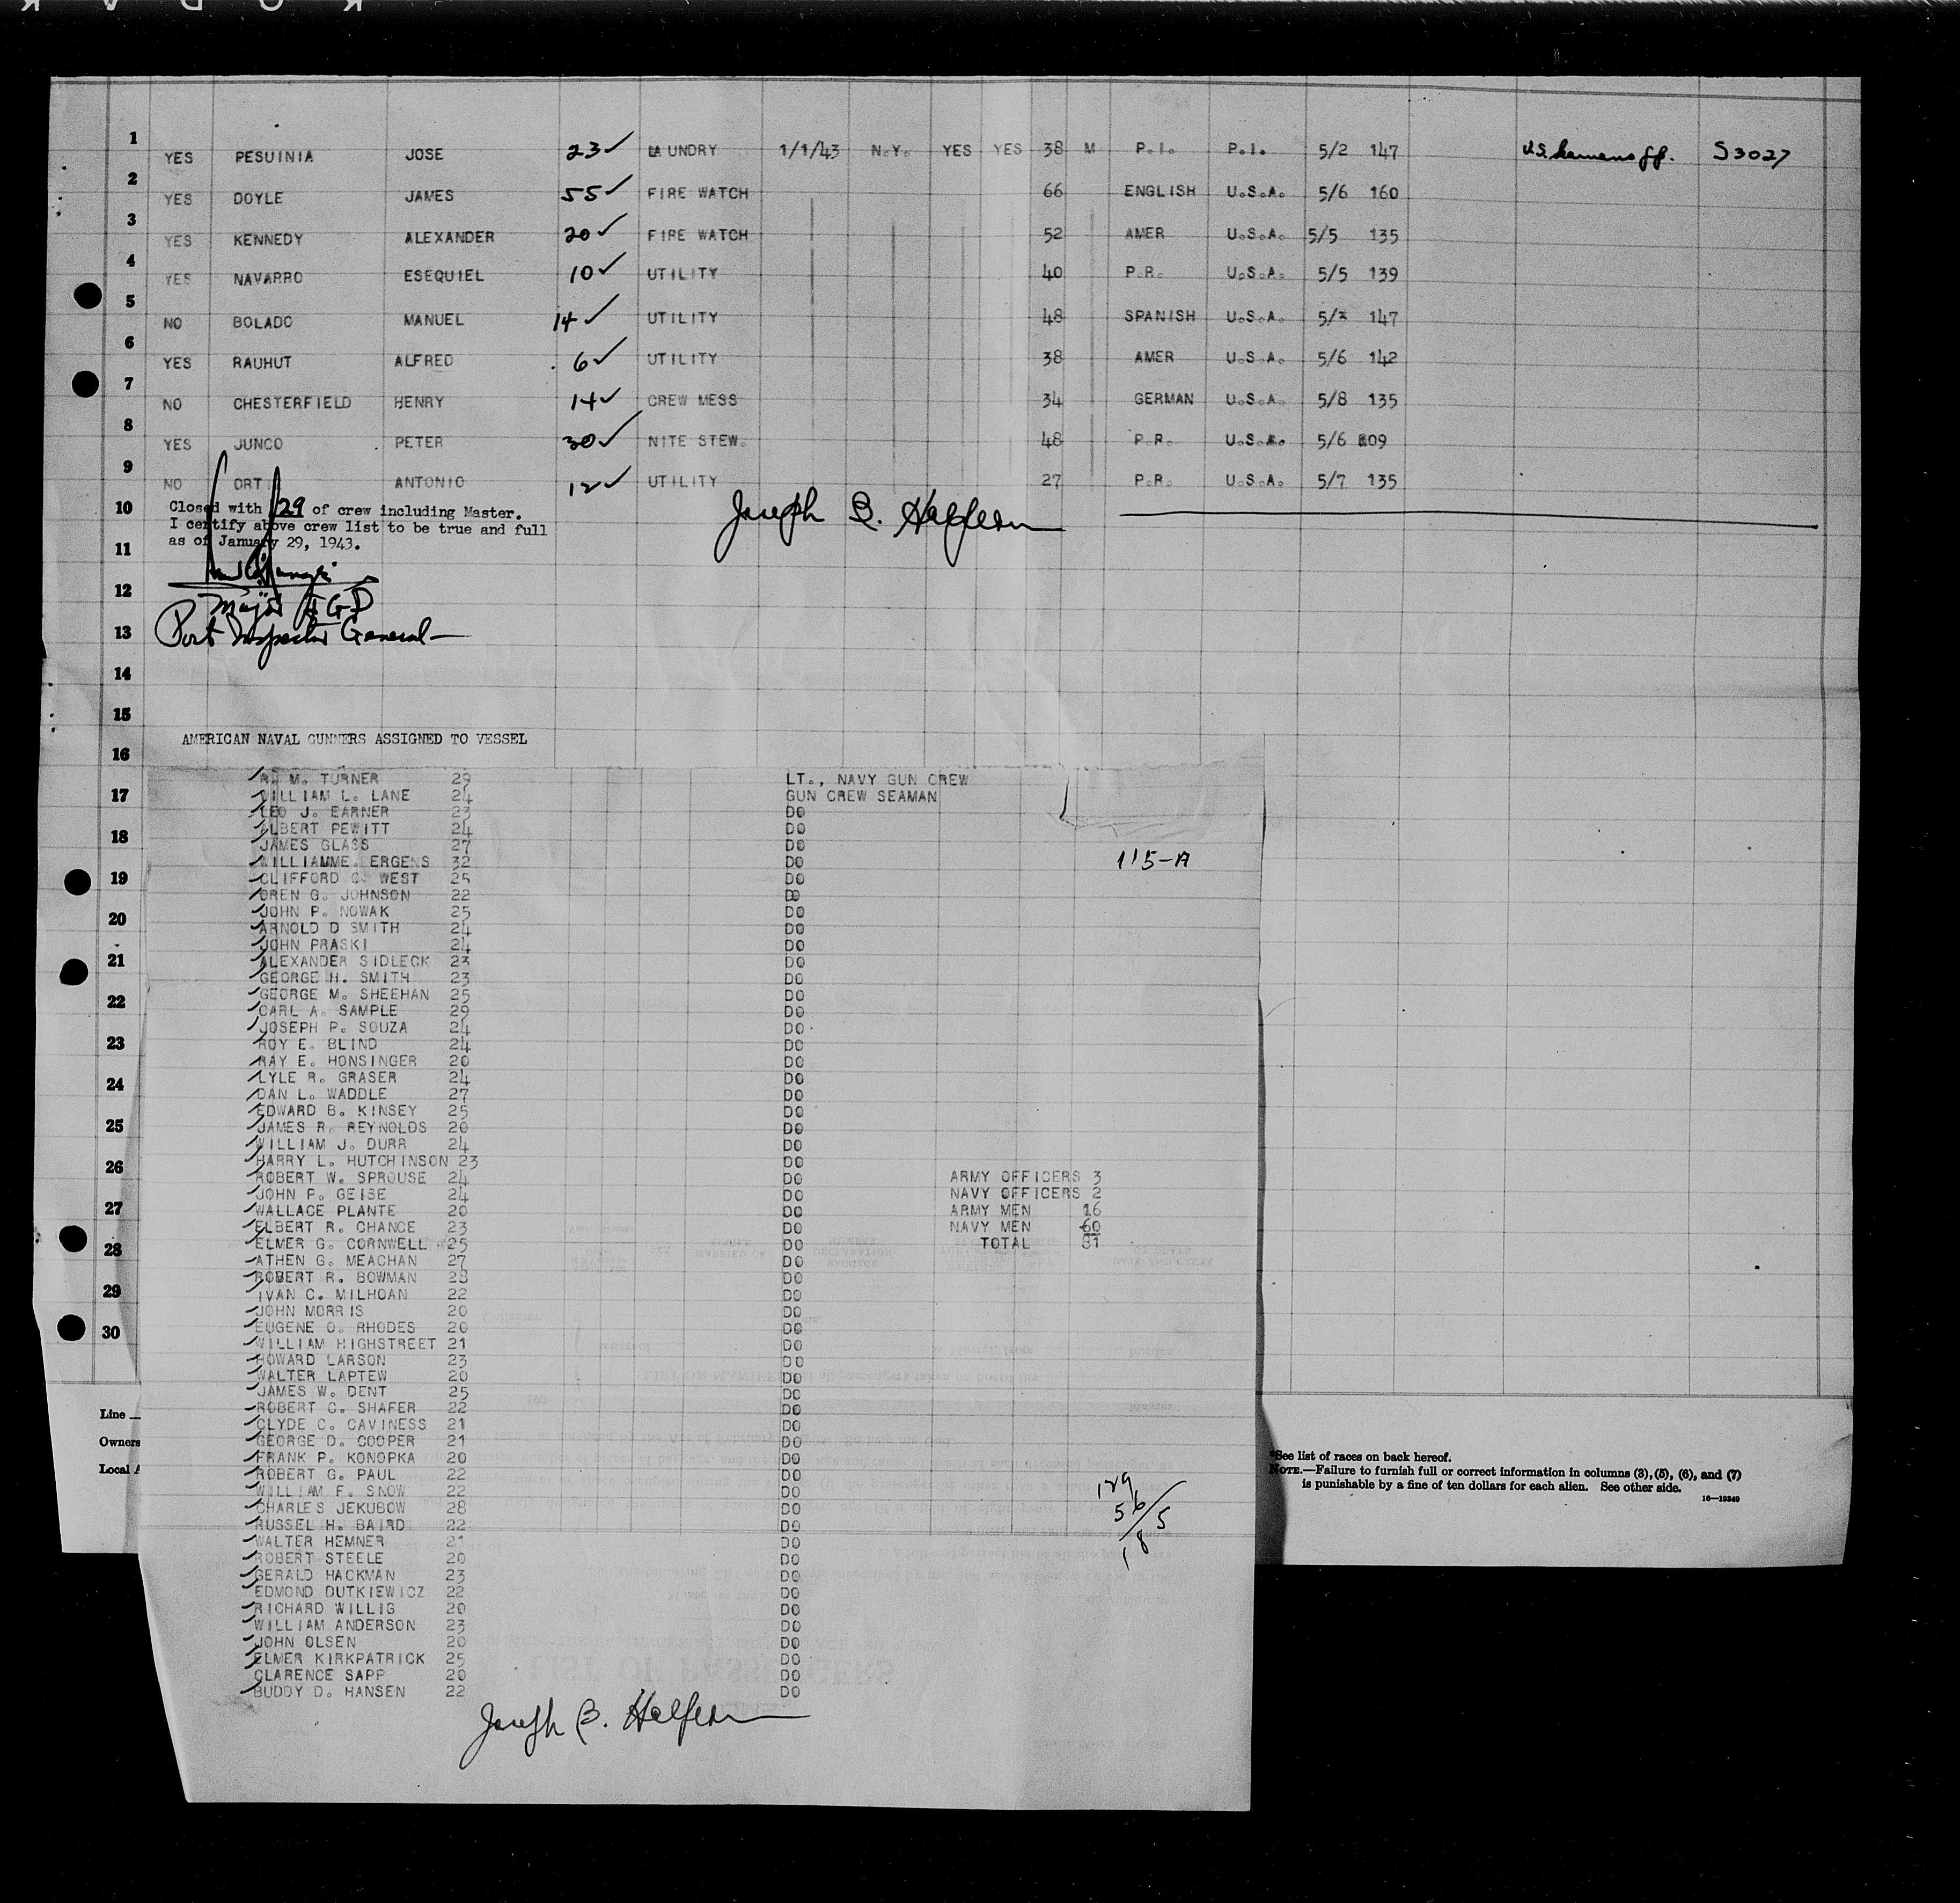 1 YES PESUINIA JOSE 23✓ LAUNDRY 1/1/43 N.Y. YES YES 38 M P.I. P.I. 5/2 147 U.S. S3027
2 YES DOYLE JAMES 55✓ FIRE WATCH 66 ENGLISH U.S.A. 5/6 160
3 YES KENNEDY ALEXANDER 20✓ FIRE WATCH 52 AMER U.S.A. 5/5 135
4 YES NAVARRO ESEQUIEL 10✓ UTILITY 40 P.R. U.S.A. 5/5 139
5 NO BOLADO MANUEL 14✓ UTILITY 48 SPANISH U.S.A. 5/3 147
6 YES RAUHUT ALFRED 6✓ UTILITY 38 AMER U.S.A. 5/6 142
7 NO CHESTERFIELD HENRY 14✓ CREW MESS 34 GERMAN U.S.A. 5/8 135
8 YES JUNCO PETER 30✓ NITE STEW. 48 P.R. U.S.A. 5/6 209
9 NO ORT ANTONIO 12✓ UTILITY 27 P.R. U.S.A. 5/7 135
10 Closed with 129 of crew including Master.
I certify above crew list to be true and full
as of January 29, 1943.
Joseph B. Halfern
11
12
Major AGD
13 Port Inspector General
14
15
AMERICAN NAVAL GUNNERS ASSIGNED TO VESSEL
16
R. M. TURNER 29 LT., NAVY GUN CREW
17 WILLIAM L. LANE 24 GUN CREW SEAMAN
LEO J. EARNER 23 DO
ALBERT PEWITT 24 DO
18 JAMES GLASS 27 DO
WILLIAMME. ERGENS 32 DO
115-A
19 CLIFFORD C. WEST 25 DO
OREN G. JOHNSON 22 DO
JOHN P. NOWAK 25 DO
20 ARNOLD D SMITH 24 DO
JOHN PRASKI 24 DO
21 ALEXANDER SIDLECK 23 DO
GEORGE H. SMITH 23 DO
22 GEORGE M. SHEEHAN 25 DO
CARL A. SAMPLE 29 DO
JOSEPH P. SOUZA 24 DO
23 ROY E. BLIND 24 DO
RAY E. HONSINGER 20 DO
24 LYLE R. GRASER 24 DO
DAN L. WADDLE 27 DO
EDWARD B. KINSEY 25 DO
25 JAMES R. REYNOLDS 20 DO
WILLIAM J. DURR 24 DO
26 HARRY L. HUTCHINSON 23 DO
ROBERT W. SPROUSE 24 DO ARMY OFFICERS 3
JOHN P. GEISE 24 DO NAVY OFFICERS 2
27 WALLACE PLANTE 20 DO ARMY MEN 16
ELBERT R. CHANCE 23 DO NAVY MEN 60
28 ELMER G. CORNWELL 25 DO TOTAL 81
ATHEN G. MEACHAN 27 DO
ROBERT R. BOWMAN 28 DO
29 IVAN C. MILHOAN 22 DO
JOHN MORRIS 20 DO
30 EUGENE O. RHODES 20 DO
WILLIAM HIGHSTREET 21 DO
HOWARD LARSON 23 DO
WALTER LAPTEW 20 DO
JAMES W. DENT 25 DO
ROBERT C. SHAFER 22 DO
Line
CLYDE C. CAVINESS 21 DO
Owners
GEORGE D. COOPER 21 DO
FRANK P. KONOPKA 20 DO
Local A
ROBERT G. PAUL 22 DO
WILLIAM F. SNOW 22 DO
CHARLES JEKUBOW 28 DO
RUSSEL H. BAIRD 22 DO
WALTER HEMNER 21 DO
ROBERT STEELE 20 DO
GERALD HACKMAN 23 DO
EDMOND DUTKIEWICZ 22 DO
RICHARD WILLIG 20 DO
WILLIAM ANDERSON 23 DO
JOHN OLSEN 20 DO
ELMER KIRKPATRICK 25 DO
CLARENCE SAPP 20 DO
BUDDY D. HANSEN 22 DO
Joseph B. Halfern
129
56
185
*See list of races on back hereof.
NOTE.—Failure to furnish full or correct information in columns (3), (5), (6), and (7)
is punishable by a fine of ten dollars for each alien. See other side.
16—19349